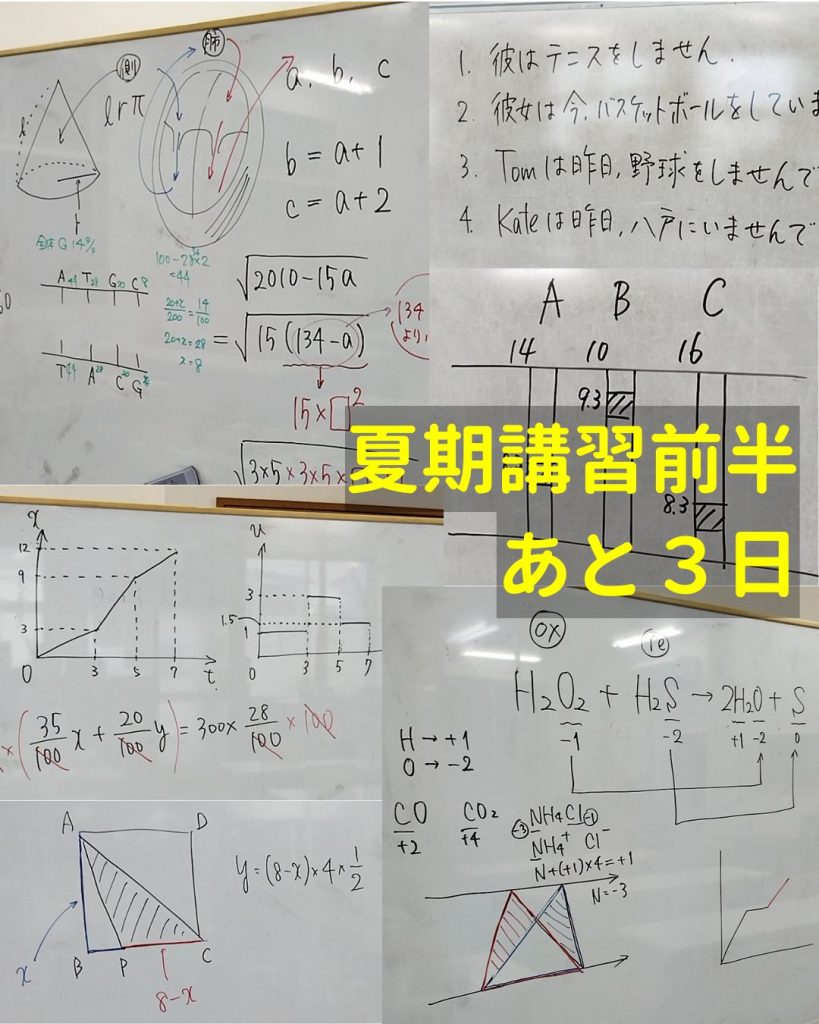 側
肺
l
lrπ
r
a, b, c
b = a+1
c = a+2
全体G 14%
A 44 T 28 G 20 C 8
T 44 A 28 C 20 G 8
100-28×2
=44
20+x/200 = 14/100
20+x=28
x=8
√2010-15a
= √15(134-a)
134
より
15×□²
√3×5×3×5×5
1. 彼はテニスをしません.
2. 彼女は今,バスケットボールをしていま
3. Tomは昨日,野球をしませんで
4. Kateは昨日,八戸にいませんで
A B C
14 10 16
9.3
8.3
夏期講習前半
あと３日
x
12
9
3
0 3 5 7 t
v
3
1.5
1
0 3 5 7
×(35/100 x + 20/100 y) = 300× 28/100 ×100
A D
B P C
x
8-x
y=(8-x)×4×1/2
ox
re
H₂O₂ + H₂S → 2H₂O + S
-1 -2 +1 -2 0
H → +1
O → -2
CO CO₂
+2 +4
-3 NH₄Cl -1
NH₄⁺ Cl⁻
N+(+1)×4=+1
N=-3